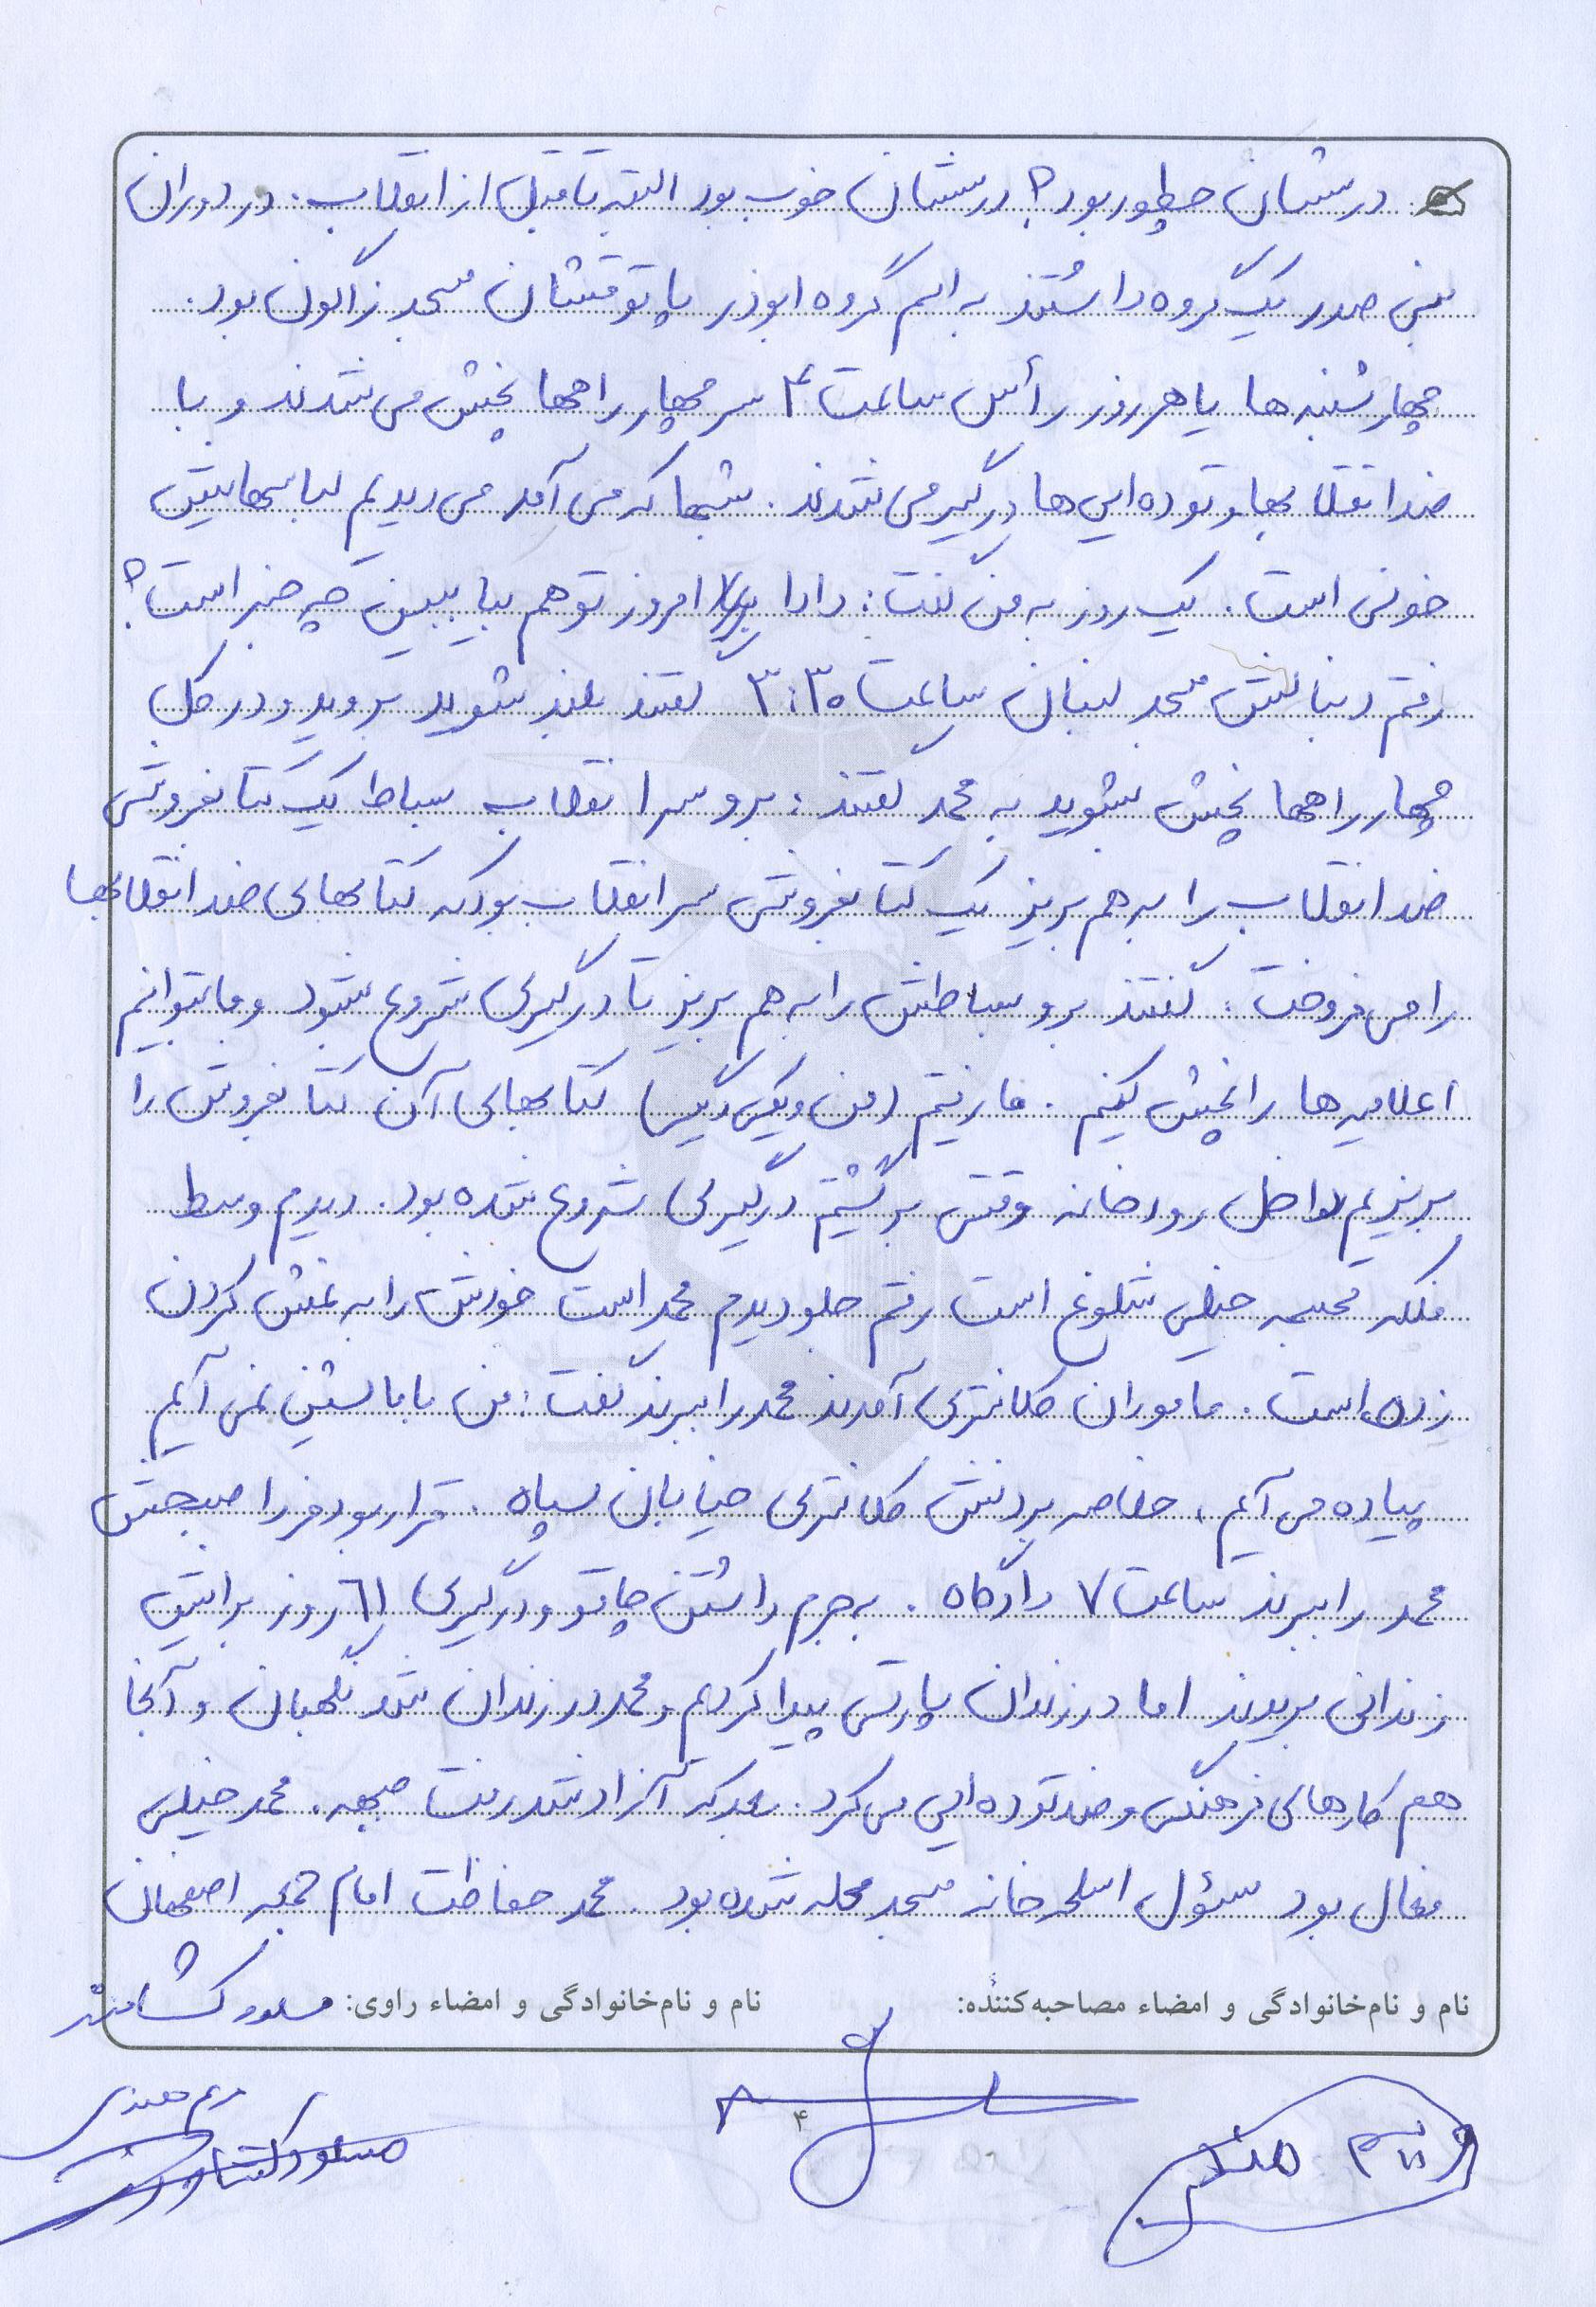 درسشان چطور بود؟ درسشان خوب بود البته تا قبل از انقلاب. در دوران
بنی صدر یک گروه داشتند به اسم گروه ابوذر پاتوقشان مسجد زاگون بود.
چهارشنبه ها یا هر روز رأس ساعت ۴ سر چهارراهها پخش می شدند و با
ضد انقلابها و توده ایی ها درگیر می شدند. شبها که می آمد می دیدیم لباسهایش
خونی است. یک روز به من گفت: دادا امروز تو هم بیا ببین چه خبر است؟
رفتم دنبالش مسجد لبنان ساعت ۳:۳۰ گفتند بلند شوید بروید و در کل
چهارراهها پخش بشوید به محمد گفتند: برو سر انقلاب بساط یک کتابفروش
ضد انقلاب را به هم بریز یک کتابفروش سر انقلاب بود که کتابهای ضد انقلابها
را می فروخت. گفتند برو بساطش را به هم بریز تا درگیری شروع شود و ما بتوانیم
اعلامیه ها را پخش کنیم. ما رفتیم (من و یکی دیگر) کتابهای آن کتابفروش را
بریزیم داخل رودخانه وقتی برگشتیم درگیری شروع شده بود. دیدم وسط
فلکه مجسمه خیلی شلوغ است رفتم جلو دیدم محمد است خودش را به غش کردن
زده است. ماموران کلانتری آمدند محمد را ببرند گفت: من با ماشین نمی آیم
پیاده می آیم، خلاصه بردنش کلانتری خیابان سپاه. قرار بود فردا صبحش
محمد را ببرند ساعت ۷ دادگاه. به جرم داشتن چاقو و درگیری ۶۱ روز برایش
زندانی بریدند اما در زندان پارتی پیدا کردیم و محمد در زندان شد نگهبان و آنجا
هم کارهای فرهنگی و ضد توده ایی می کرد. بعد که آزاد شد رفت جبهه. محمد خیلی
فعال بود مسؤل اسلحه خانه مسجد محله شده بود. محمد حفاظت امام جمعه اصفهان
نام و نام‌خانوادگی و امضاء مصاحبه‌کننده:
نام و نام‌خانوادگی و امضاء راوی:
۴